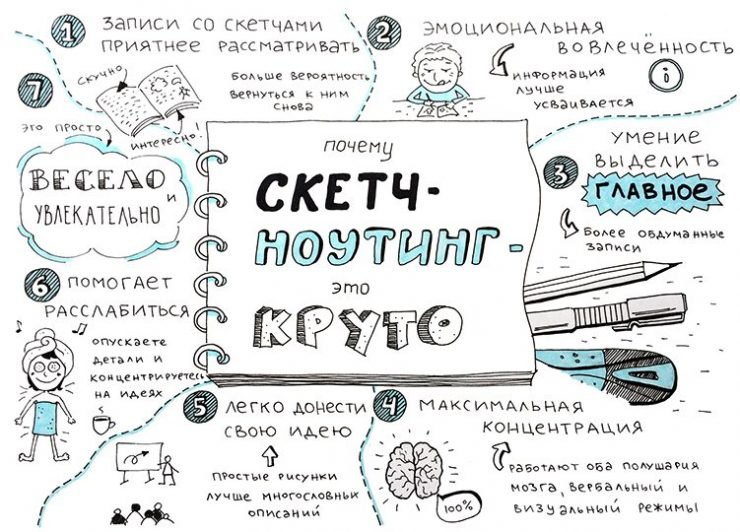 почему
СКЕТЧ-
НОУТИНГ-
это
КРУТО
1
ЗАПИСИ СО СКЕТЧАМИ
ПРИЯТНЕЕ РАССМАТРИВАТЬ
СКУЧНО
ИНТЕРЕСНО!
БОЛЬШЕ ВЕРОЯТНОСТЬ
ВЕРНУТЬСЯ К НИМ
СНОВА
2
ЭМОЦИОНАЛЬНАЯ
ВОВЛЕЧЁННОСТЬ
ИНФОРМАЦИЯ
ЛУЧШЕ
УСВАИВАЕТСЯ
i
3
УМЕНИЕ
ВЫДЕЛИТЬ
ГЛАВНОЕ
БОЛЕЕ ОБДУМАННЫЕ
ЗАПИСИ
4
МАКСИМАЛЬНАЯ
КОНЦЕНТРАЦИЯ
РАБОТАЮТ ОБА ПОЛУШАРИЯ
МОЗГА, ВЕРБАЛЬНЫЙ И
ВИЗУАЛЬНЫЙ РЕЖИМЫ
100%
5
ЛЕГКО ДОНЕСТИ
СВОЮ ИДЕЮ
ПРОСТЫЕ РИСУНКИ
ЛУЧШЕ МНОГОСЛОВНЫХ
ОПИСАНИЙ
6
ПОМОГАЕТ
РАССЛАБИТЬСЯ
ОПУСКАЕТЕ
ДЕТАЛИ И
КОНЦЕНТРИРУЕТЕСЬ
НА ИДЕЯХ
7
ЭТО ПРОСТО
ВЕСЕЛО
И
УВЛЕКАТЕЛЬНО